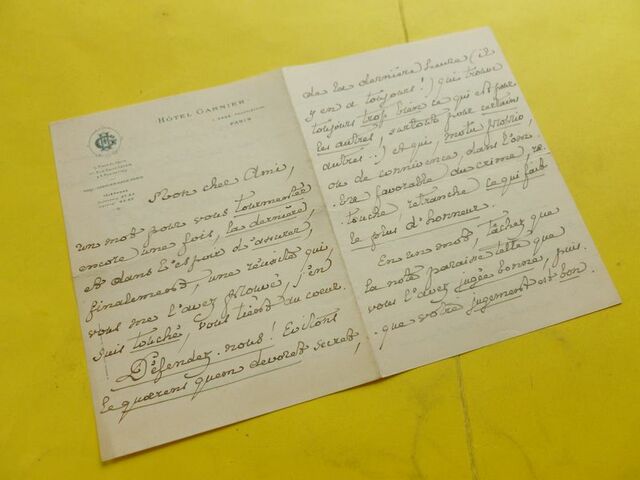 HÔTEL GARNIER
PARIS
Mon cher Ami,
un mot pour vous tourmenter
encore une fois, la dernière,
et dans l'espoir d'assurer,
finalement, une réussite qui,
vous me l'avez prouvé, j'en
suis touché, vous tient au coeur.
Défendez-nous! Evitons
le quærens quem devoret secret,
de la dernière heure (il
y en a toujours!) qui trouve
toujours trop bien ce qui est pour
les autres, surtout pour certains
autres..! et qui, motu proprio
ou de connivence, dans l'om-
bre favorable au crime, re-
touche, retranche ce qui fait
le plus d'honneur.
En un mot, tâchez que
la note paraisse telle que
vous l'avez jugée bonne, puis-
que votre jugement est bon.